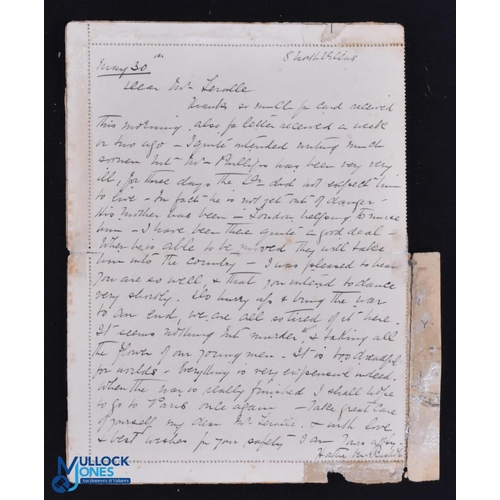 May 30th
Dear Mr
Thanks so much for card received
this morning. also for letter received a week
or two ago - I quite intended writing much
sooner but Mr Phillips was been very very
ill, for three days the Dr did not expect him
to live - in fact he is not yet out of danger -
His mother has been in London helping to nurse
him - I have been there quite a good deal -
When he is able to be moved they will take
him into the country - I was pleased to hear
you are so well, & that you intend to dance
very shortly. Do hurry up & bring the war
to an end, we are all so tired of it here.
It seems nothing but murder, & taking all
the flower of our young men. It is too dreadful
for worlds - Everything is very expensive indeed.
When the war is really finished I shall hope
to go to Paris once again - Take great care
of yourself my dear Mr & with love
& best wishes for your safety I am Yours
MULLOCK
JONES
Auctioneers & Valuers